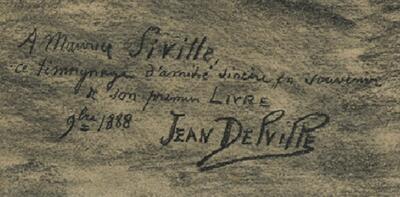 A Maurice Siville,
ce témoignage d'amitié sincère en souvenir
de son premier LIVRE
9bre 1888
JEAN DELVILLE